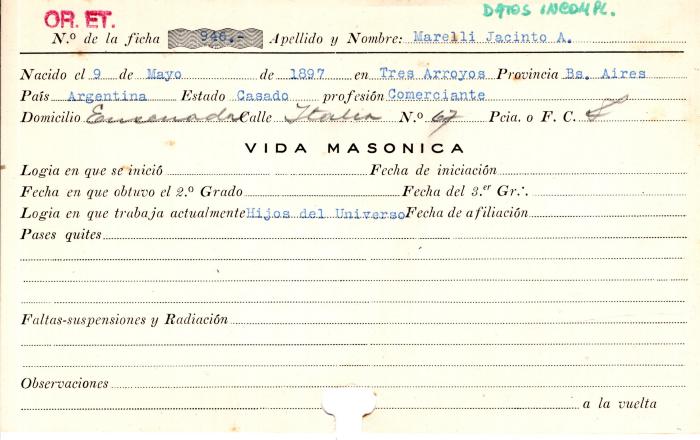 OR. ET.
DATOS INCOMPL.
N.º de la ficha 946.- Apellido y Nombre: Marelli Jacinto A.
Nacido el 9 de Mayo de 1897 en Tres Arroyos Provincia Bs. Aires
País Argentina Estado Casado profesión Comerciante
Domicilio Ensenada Calle Italia N.º 67 Pcia. o F. C.
VIDA MASONICA
Logia en que se inició Fecha de iniciación
Fecha en que obtuvo el 2.º Grado Fecha del 3.er Gr∴
Logia en que trabaja actualmente Hijos del Universo Fecha de afiliación
Pases quites
Faltas-suspensiones y Radiación
Observaciones
a la vuelta